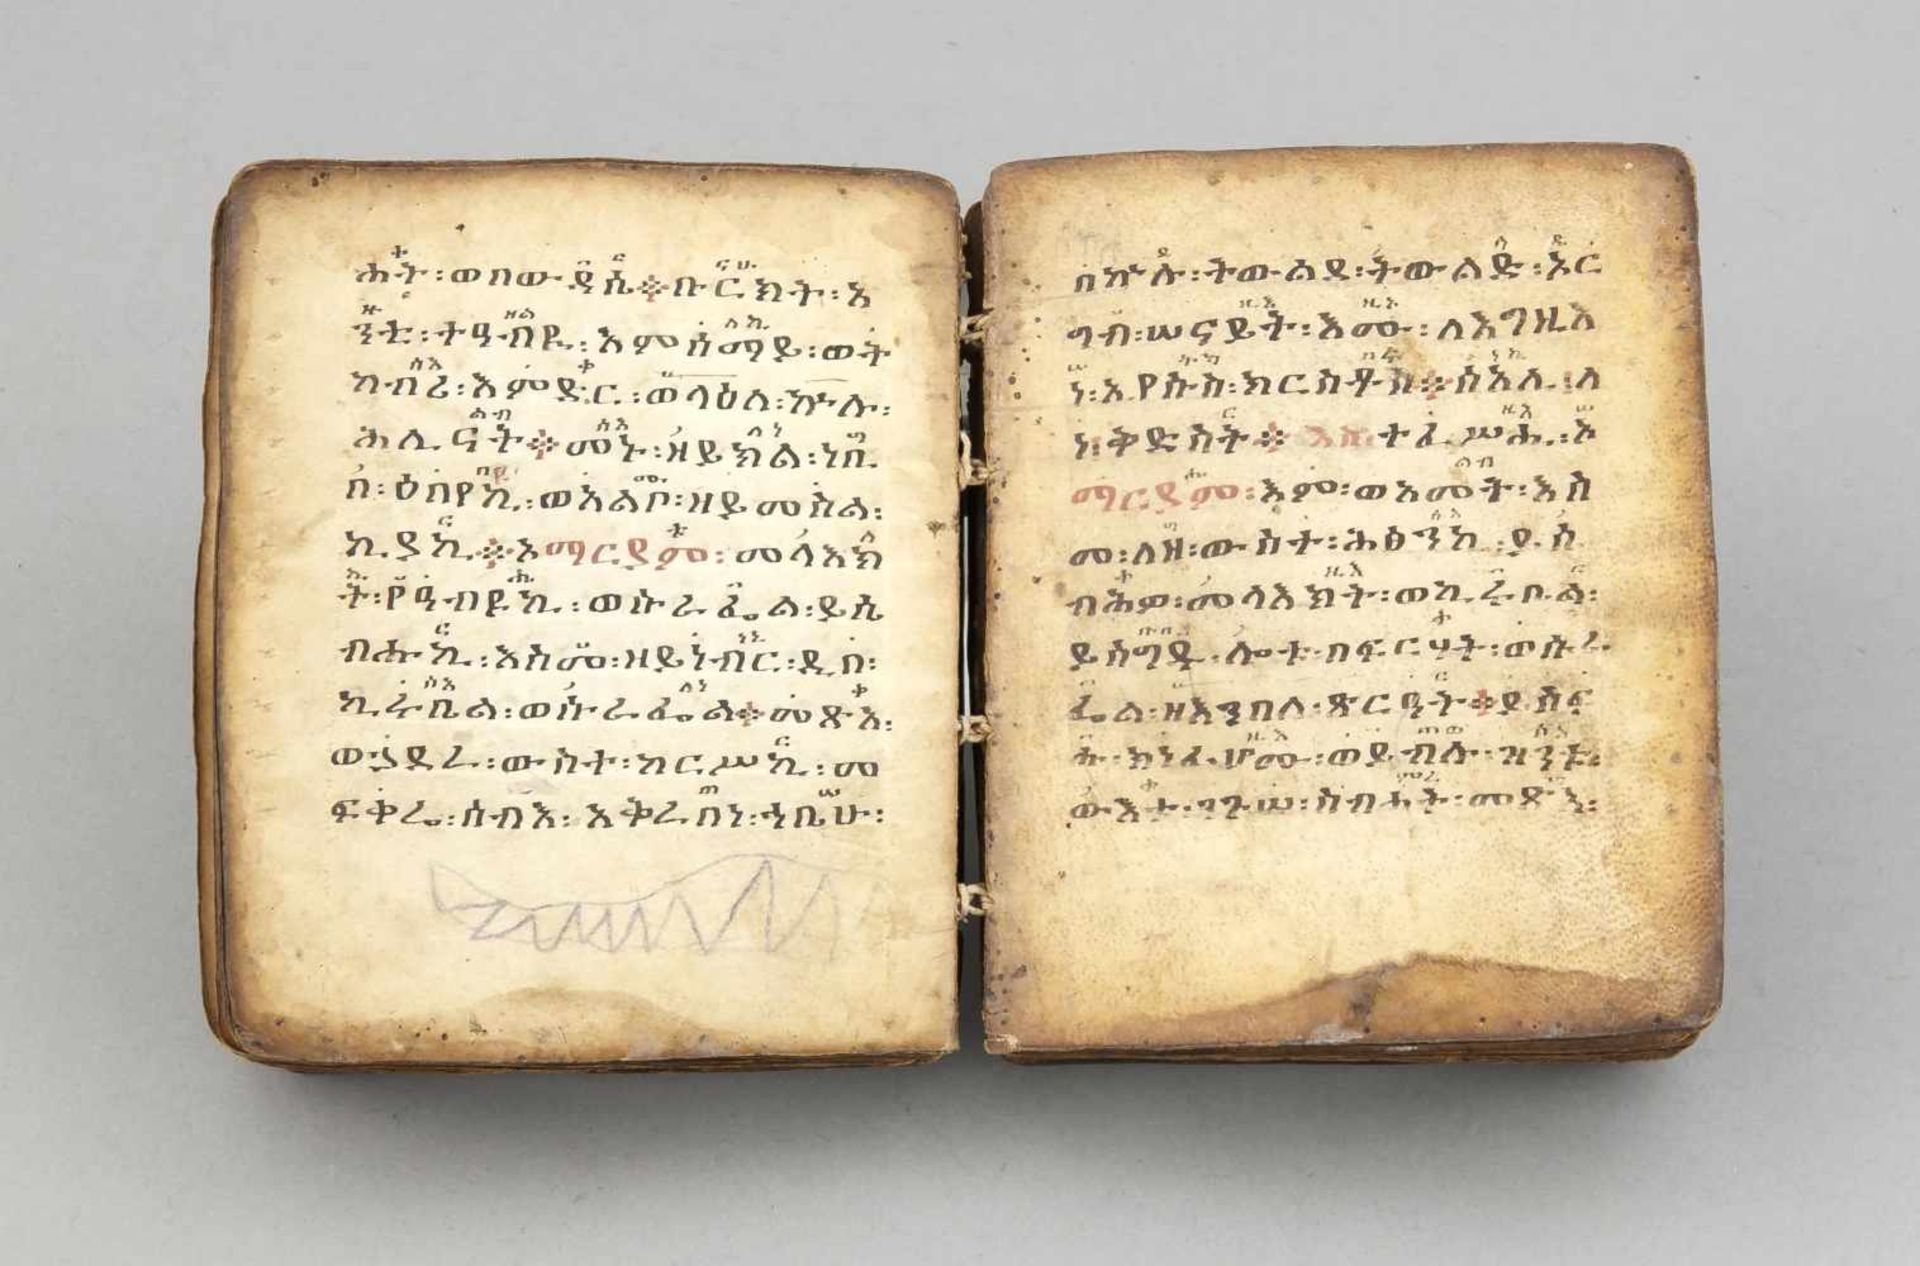 ሐት፡ወበውዳሴ፨ቡርክት፡አ
ንቲ፡ተዓብዪ፡እምሰማይ፡ወት
ከብሪ፡እምድር፡ወላዕለ፡ኵሉ፡
ሕሊናት፨መኑ፡ዘይክል፡ነቢ
በ፡ዕበየኪ፡ወአልቦ፡ዘይመስል፡
ኪያኪ፨አማርያም፡መላእክ
ት፡የዓብዩኪ፡ወሱራፌል፡ይሴ
ብሑኪ፡እስመ፡ዘይነብር፡ዲበ፡
ኪሩቤል፡ወሱራፌል፨መጽአ፡
ወኃደረ፡ውስተ፡ከርሥኪ፡መ
ፍቀሬ፡ሰብእ፡አቅረበነ፡ኀቤሁ፡
በኵሉ፡ትውልደ፡ትውልድ፡እር
ግብ፡ሠናይት፡እሙ፡ለእግዚእ
ነ፡ኢየሱስ፡ክርስቶስ፨ሰአሊ፡ለ
ነ፡ቅድስት፨ተፈሥሒ፡ኦ
ማርያም፡እም፡ወአመት፡እስ
መ፡ለዘ፡ውስተ፡ሕፅንኪ፡ይሴ
ብሕዎ፡መላእክት፡ወኪሩቤል፡
ይሰግዱ፡ሎቱ፡በፍርሃት፡ወሱራ
ፌል፡ዘእንበለ፡ጽርዓት፨ይሰፍ
ሑ፡ክነፊሆሙ፡ወይብሉ፡ዝንቱ፡
ውእቱ፡ንጉሠ፡ስብሐት፡መጽአ፡